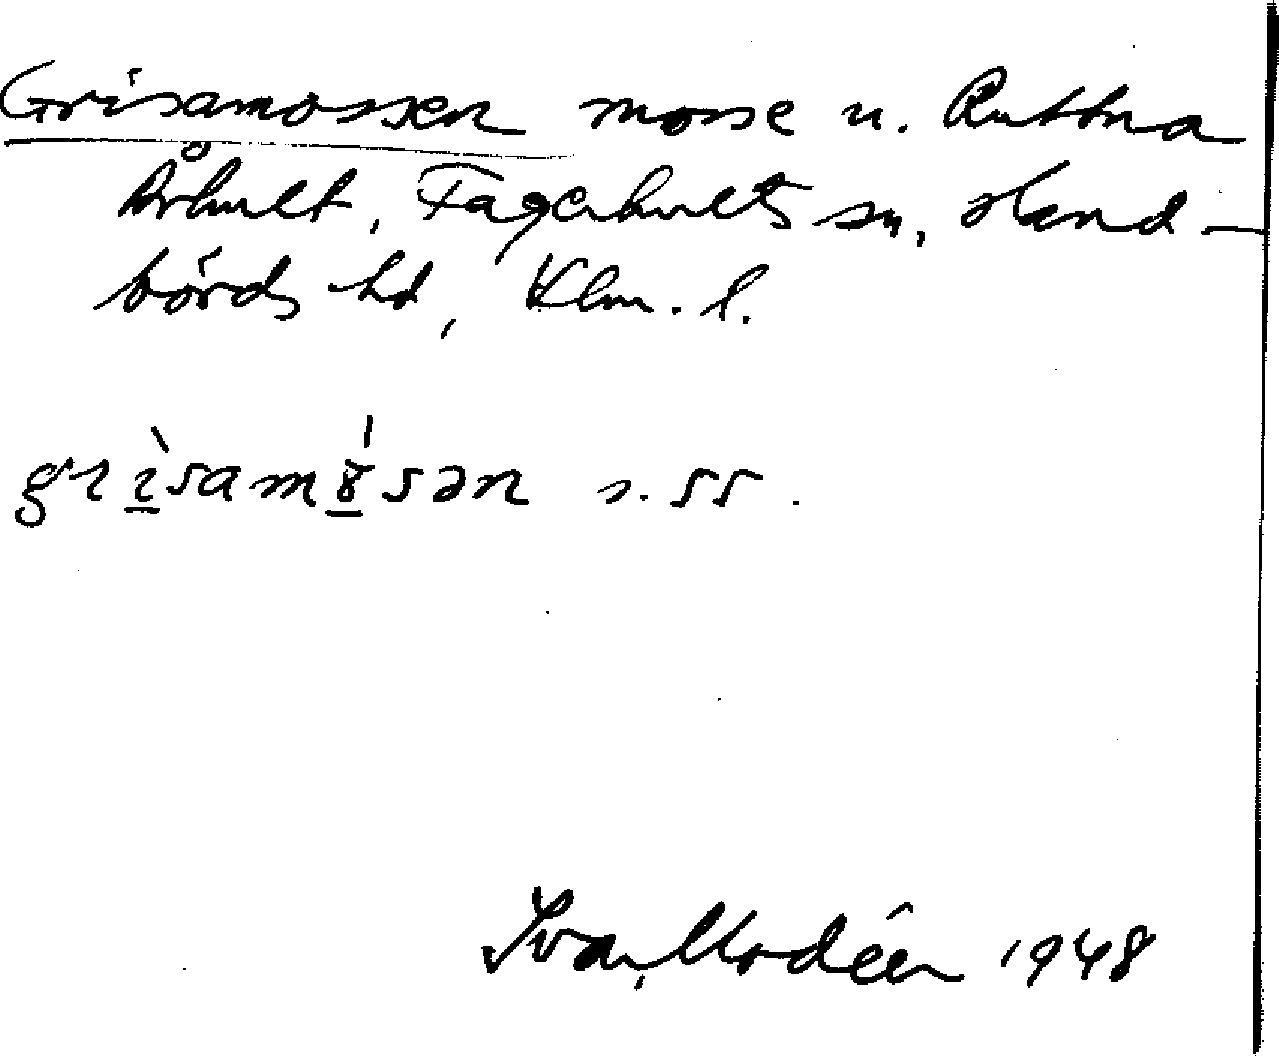 Grisamossen mosse u. Ruttna
Århult, Fagerhults sn, Hand-
börds hd, Klm. l.
grisamȣsən s. ss.
Ivar Modéer 1948